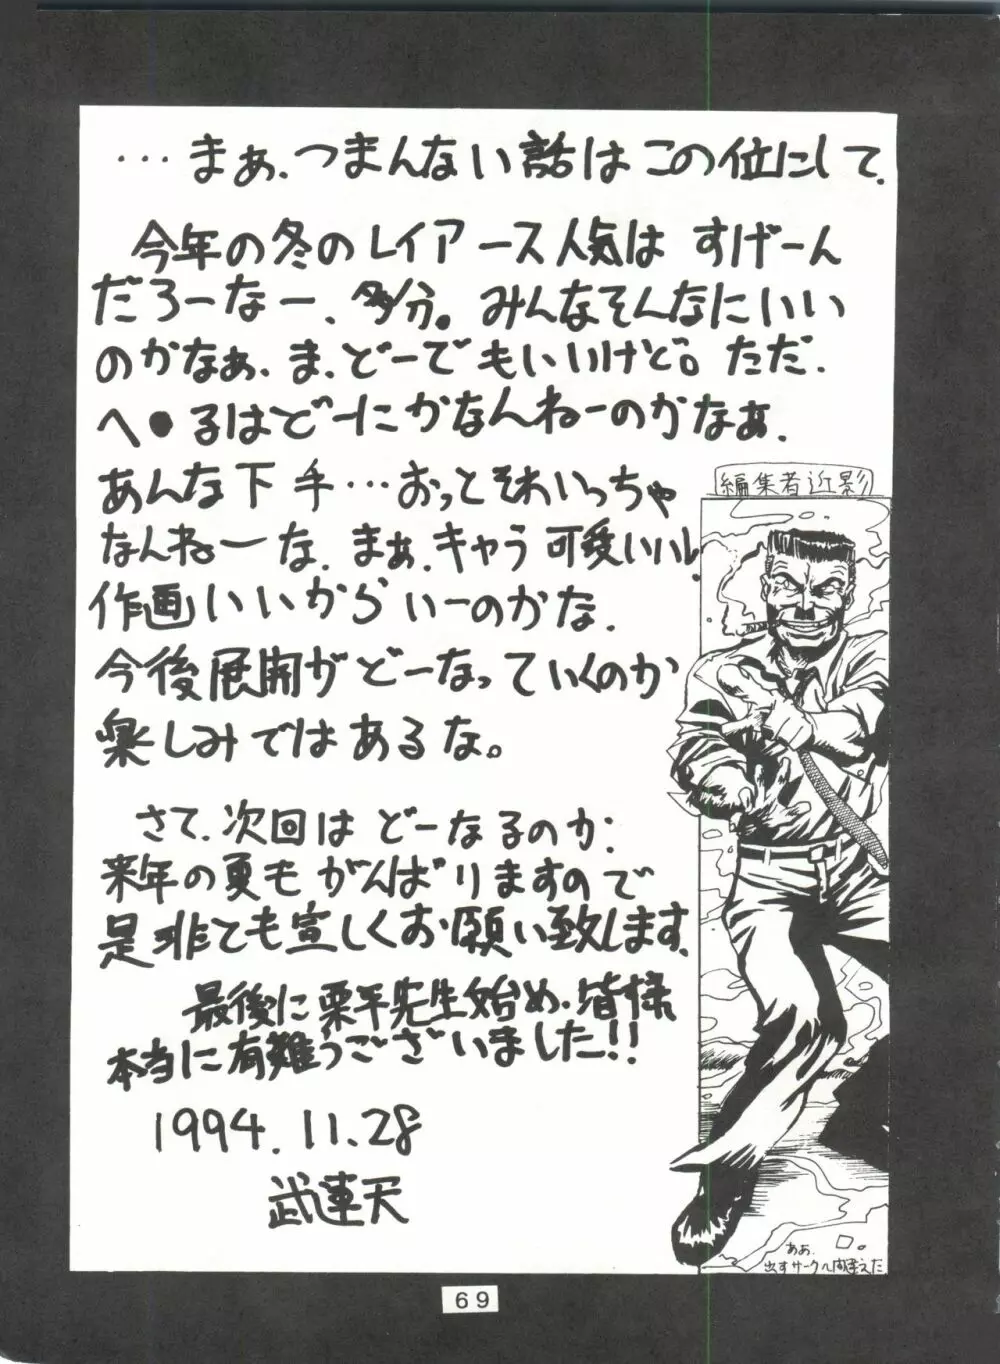 …まぁ、つまんない話はこの位にして、
今年の冬のレイアース人気は すげーん
だろーなー、多分。みんなそんなにいい
のかなぁ、ま、どーでもいいけど。ただ、
へ●るはどーにかなんねーのかなぁ、
あんな下手…おっとそれいっちゃ
なんねーな、まぁ、キャラ可愛いいし、
作画いいからいーのかな、
今後展開がどーなっていくのか
楽しみではあるな。
さて、次回はどーなるのか、
来年の夏もがんばりますので
是非とも宜しくお願い致します。
最後に栗平先生始め、皆様
本当に有難うございました!!
1994.11.28
武蓮天
編集者近影
ああ、
出すサークル間違えた
69